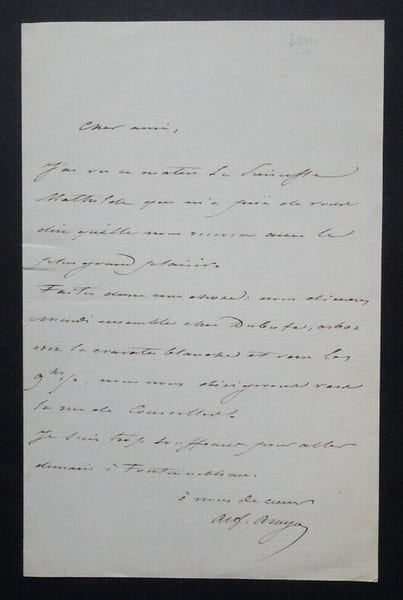 Cher ami,
J'ai vu ce matin la Princesse
Mathilde qui m'a prié de vous
dire qu'elle nous recevra avec le
plus grand plaisir.
Faites donc une chose: nous dinons
Mardi ensemble chez Dubufe, arbo-
rez la cravate blanche et vers les
9h, nous nous dirigerons vers
la rue de Courcelles.
Je suis trop souffrant pour aller
demain à Fontainebleau.
à vous de coeur
Alf. Arago